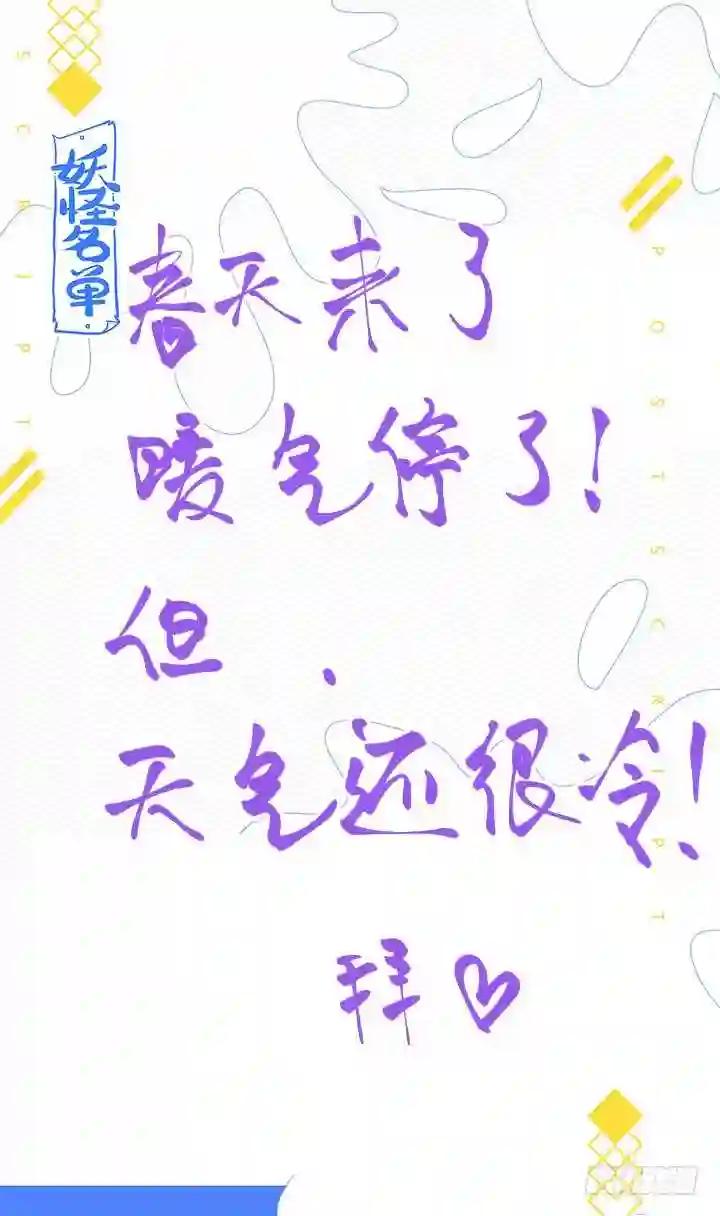 POSTSCRIPT
妖怪名单
春天来了
暖气停了!
但.
天气还很冷!
拜♡
POSTSCRIPT